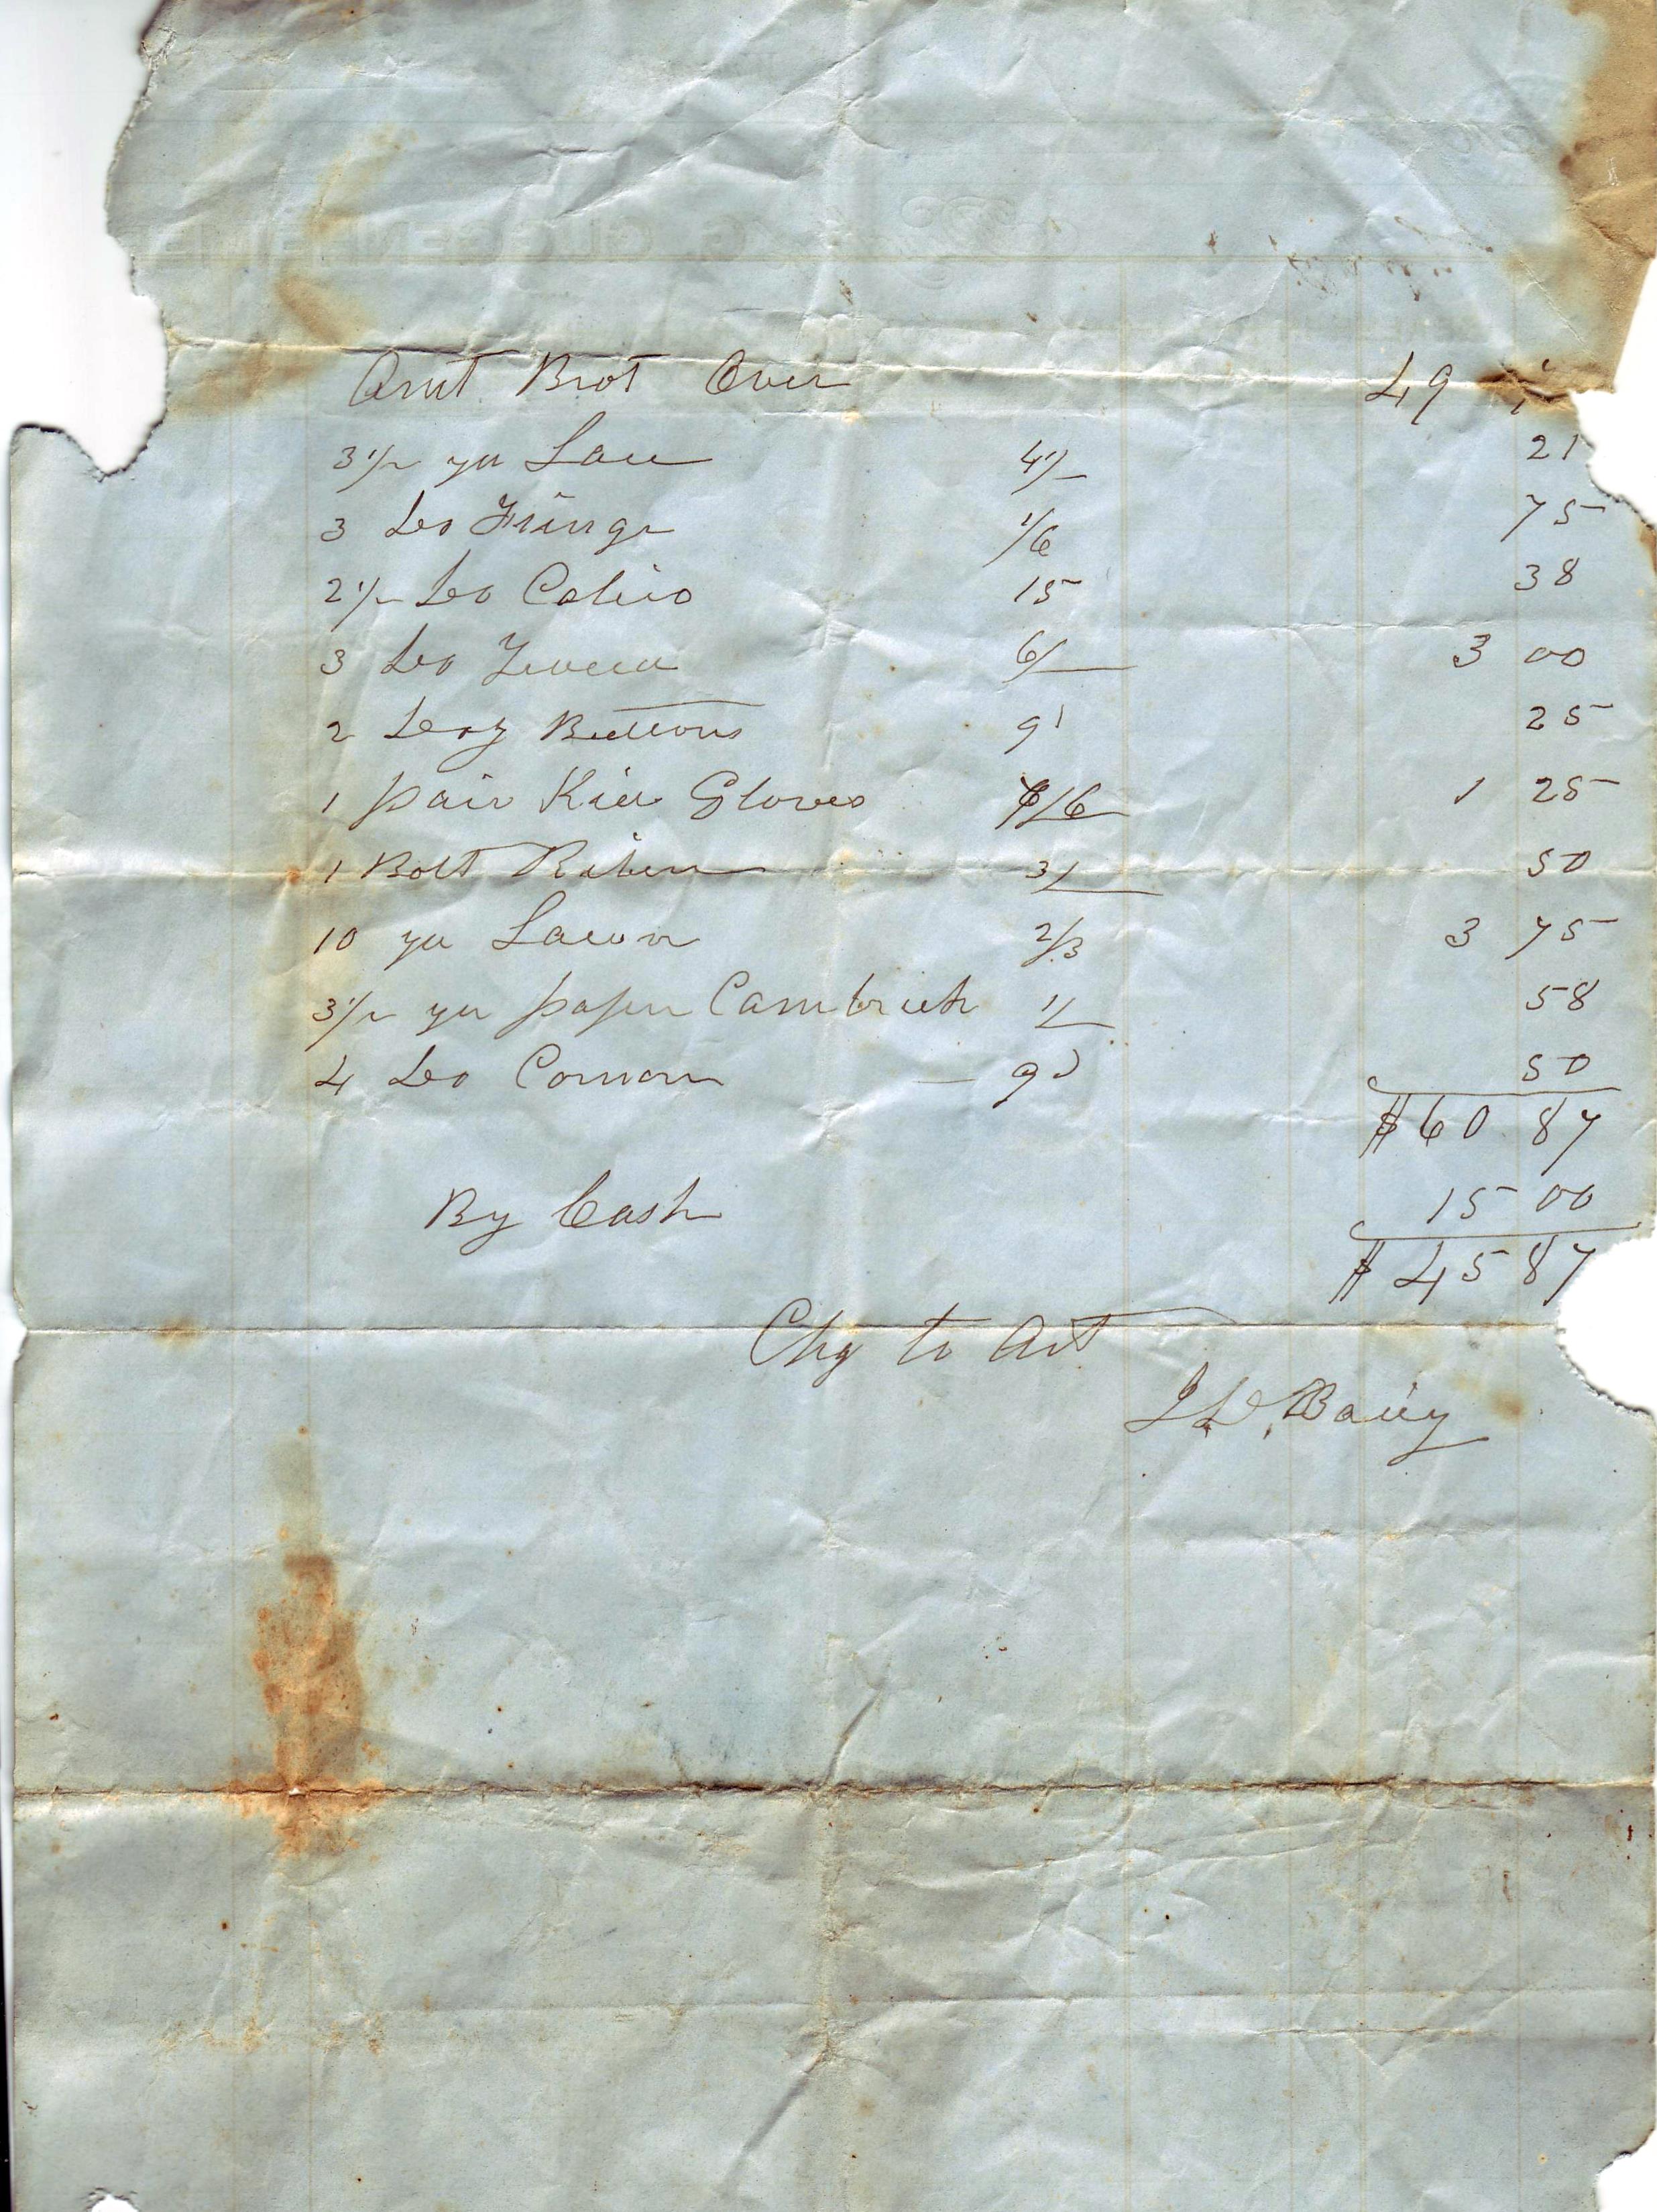 G. GUGGENHEIME
Amt Brot Over 49
3 1/2 yd Lace 4/ 21
3 do Fringe 1/6 75
2 1/2 do Calico 15 38
3 do 6/ 3 00
2 doz Buttons 9d 25
1 pair Kid Gloves /6 1 25
1 Bolt Riben 3/ 50
10 yd Lawn 2/3 3 75
3 1/2 yd paper Cambrick 1/ 58
4 do 9d 50
$60 87
By Cash 15 00
$45 87
Chg to Act